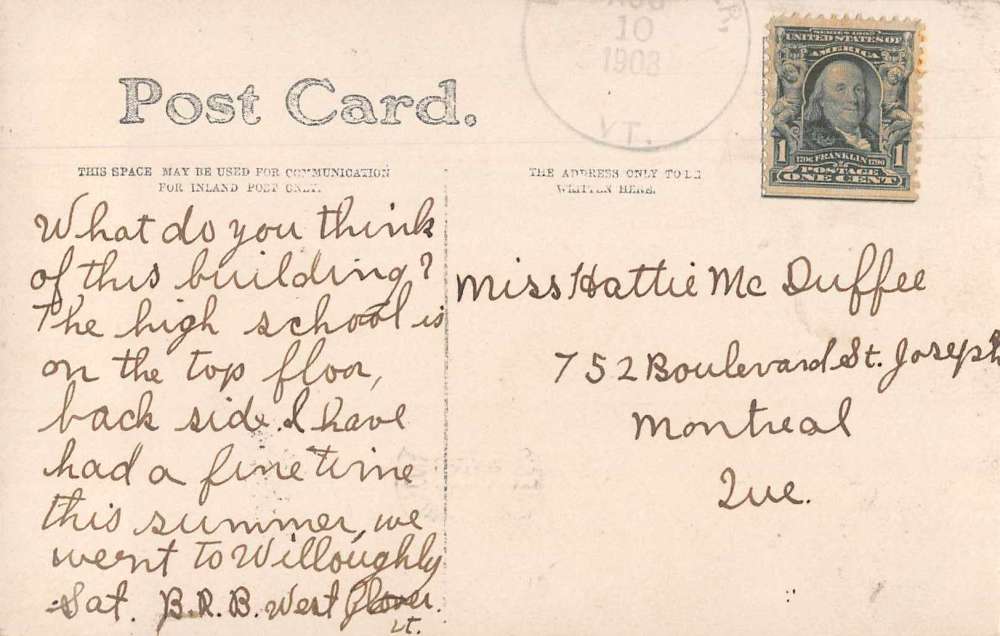 AUG
10
1908
VT.
SERIES 1902
UNITED STATES OF
AMERICA
1 1706 FRANKLIN 1790 1
POSTAGE
ONE CENT
Post Card.
THIS SPACE MAY BE USED FOR COMMUNICATION
FOR INLAND POST ONLY.
THE ADDRESS ONLY TO BE
WRITTEN HERE.
What do you think
of this building?
The high school is
on the top floor,
back side. I have
had a fine time
this summer, we
went to Willoughly
Sat. B.R.B. West Glover.
Vt.
Miss Hattie Mc Duffee
752 Boulevard St. Joseph
Montreal
Que.